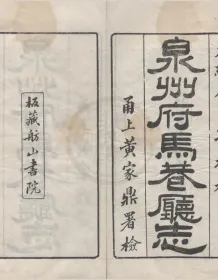 泉州府馬巷廳志
甬上黃家鼎署檢
板藏舫山書院